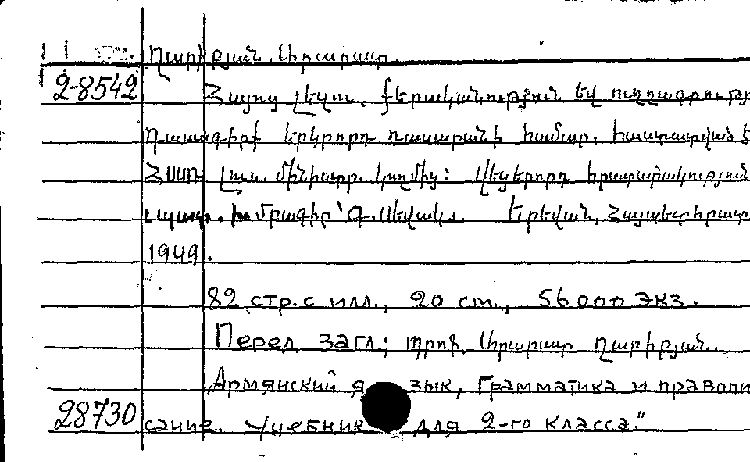 Ղարիբյան Արարատ.
2-8542 Հայոց լեզու. քերականություն եվ ուղղագրությ
Դասագիրք երկրորդ դասարանի համար. հաստատված է
ՀՍՍՌ լուս. մինիստր. կողմից: Վեցերորդ հրատարակություն
Գ. Սեվակ. Երեվան, Հայպետհրատ
1949.
82 стр. с илл., 20 см., 56.000 экз.
Перед загл.: պրոֆ. Արարատ Ղարիբյան.
Армянский я зык, Грамматика и правопи
28730 сание. Учебник для 2-го класса."